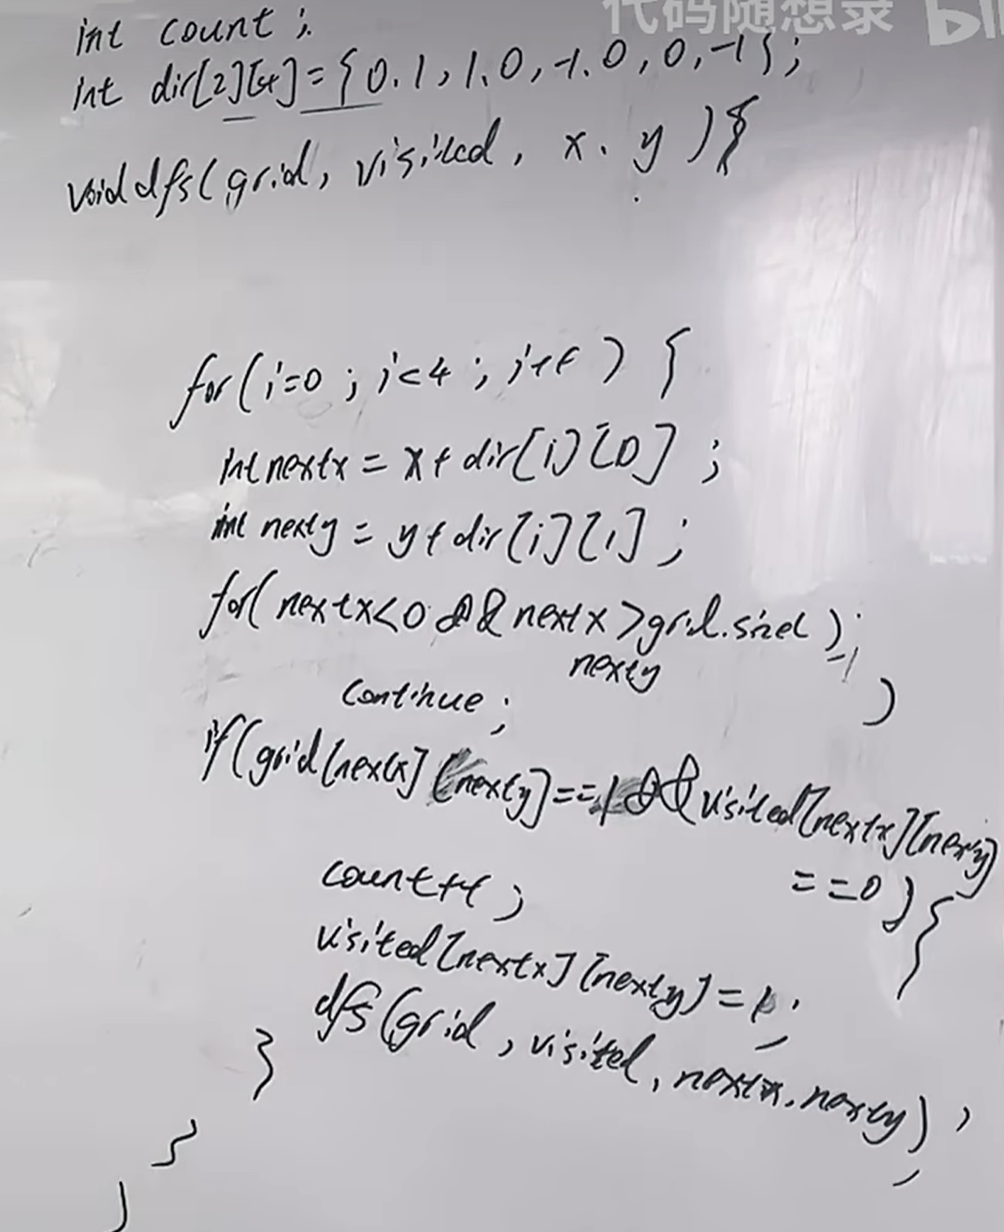 代码随想录 bi
int count;
int dir[2][4]={0.1,1.0,-1.0,0,-1};
void dfs(grid, visited, x. y){
for(i=0; i<4; i++) {
int nextx = x + dir[i][0];
int nexty = y + dir[i][1];
for(nextx<0 && nextx>grid.size()-1
nexty )
continue;
if(grid[nextx][nexty]==1&&visited[nextx][nexty]
==0){
count++;
visited[nextx][nexty]=1;
dfs(grid, visited, nextx. nexty);
}
}
}